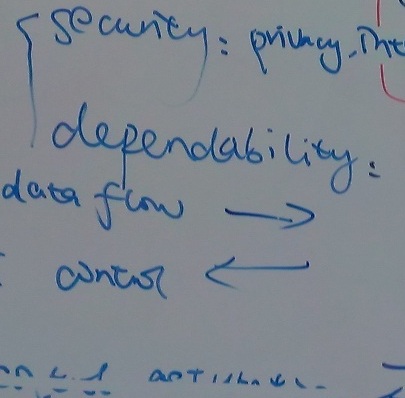 security: privacy,
dependability:
data flow →
control ←